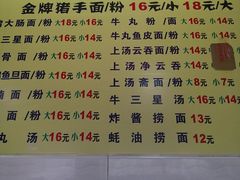 金牌猪手面/粉 16元/小 18元/大
大肠面/粉 大18元 小16元
三星面/粉 大16元 小14元
骨面/粉 大16元 小14元
鱼旦面/粉 大16元 小14元
面/粉 大16元 小14元
面/粉 大16元 小14元
丸 汤 大16元 小14元
牛丸粉/面 大16元 小14元
牛丸鱼皮面/粉 大16元 小14元
上汤云吞面/粉 大16元 小14元
上汤净云吞 大16元 小14元
上汤斋面/粉 大8元 小7元
牛 三 星 汤 大16元 小14元
炸酱捞面 13元
蚝油捞面 12元